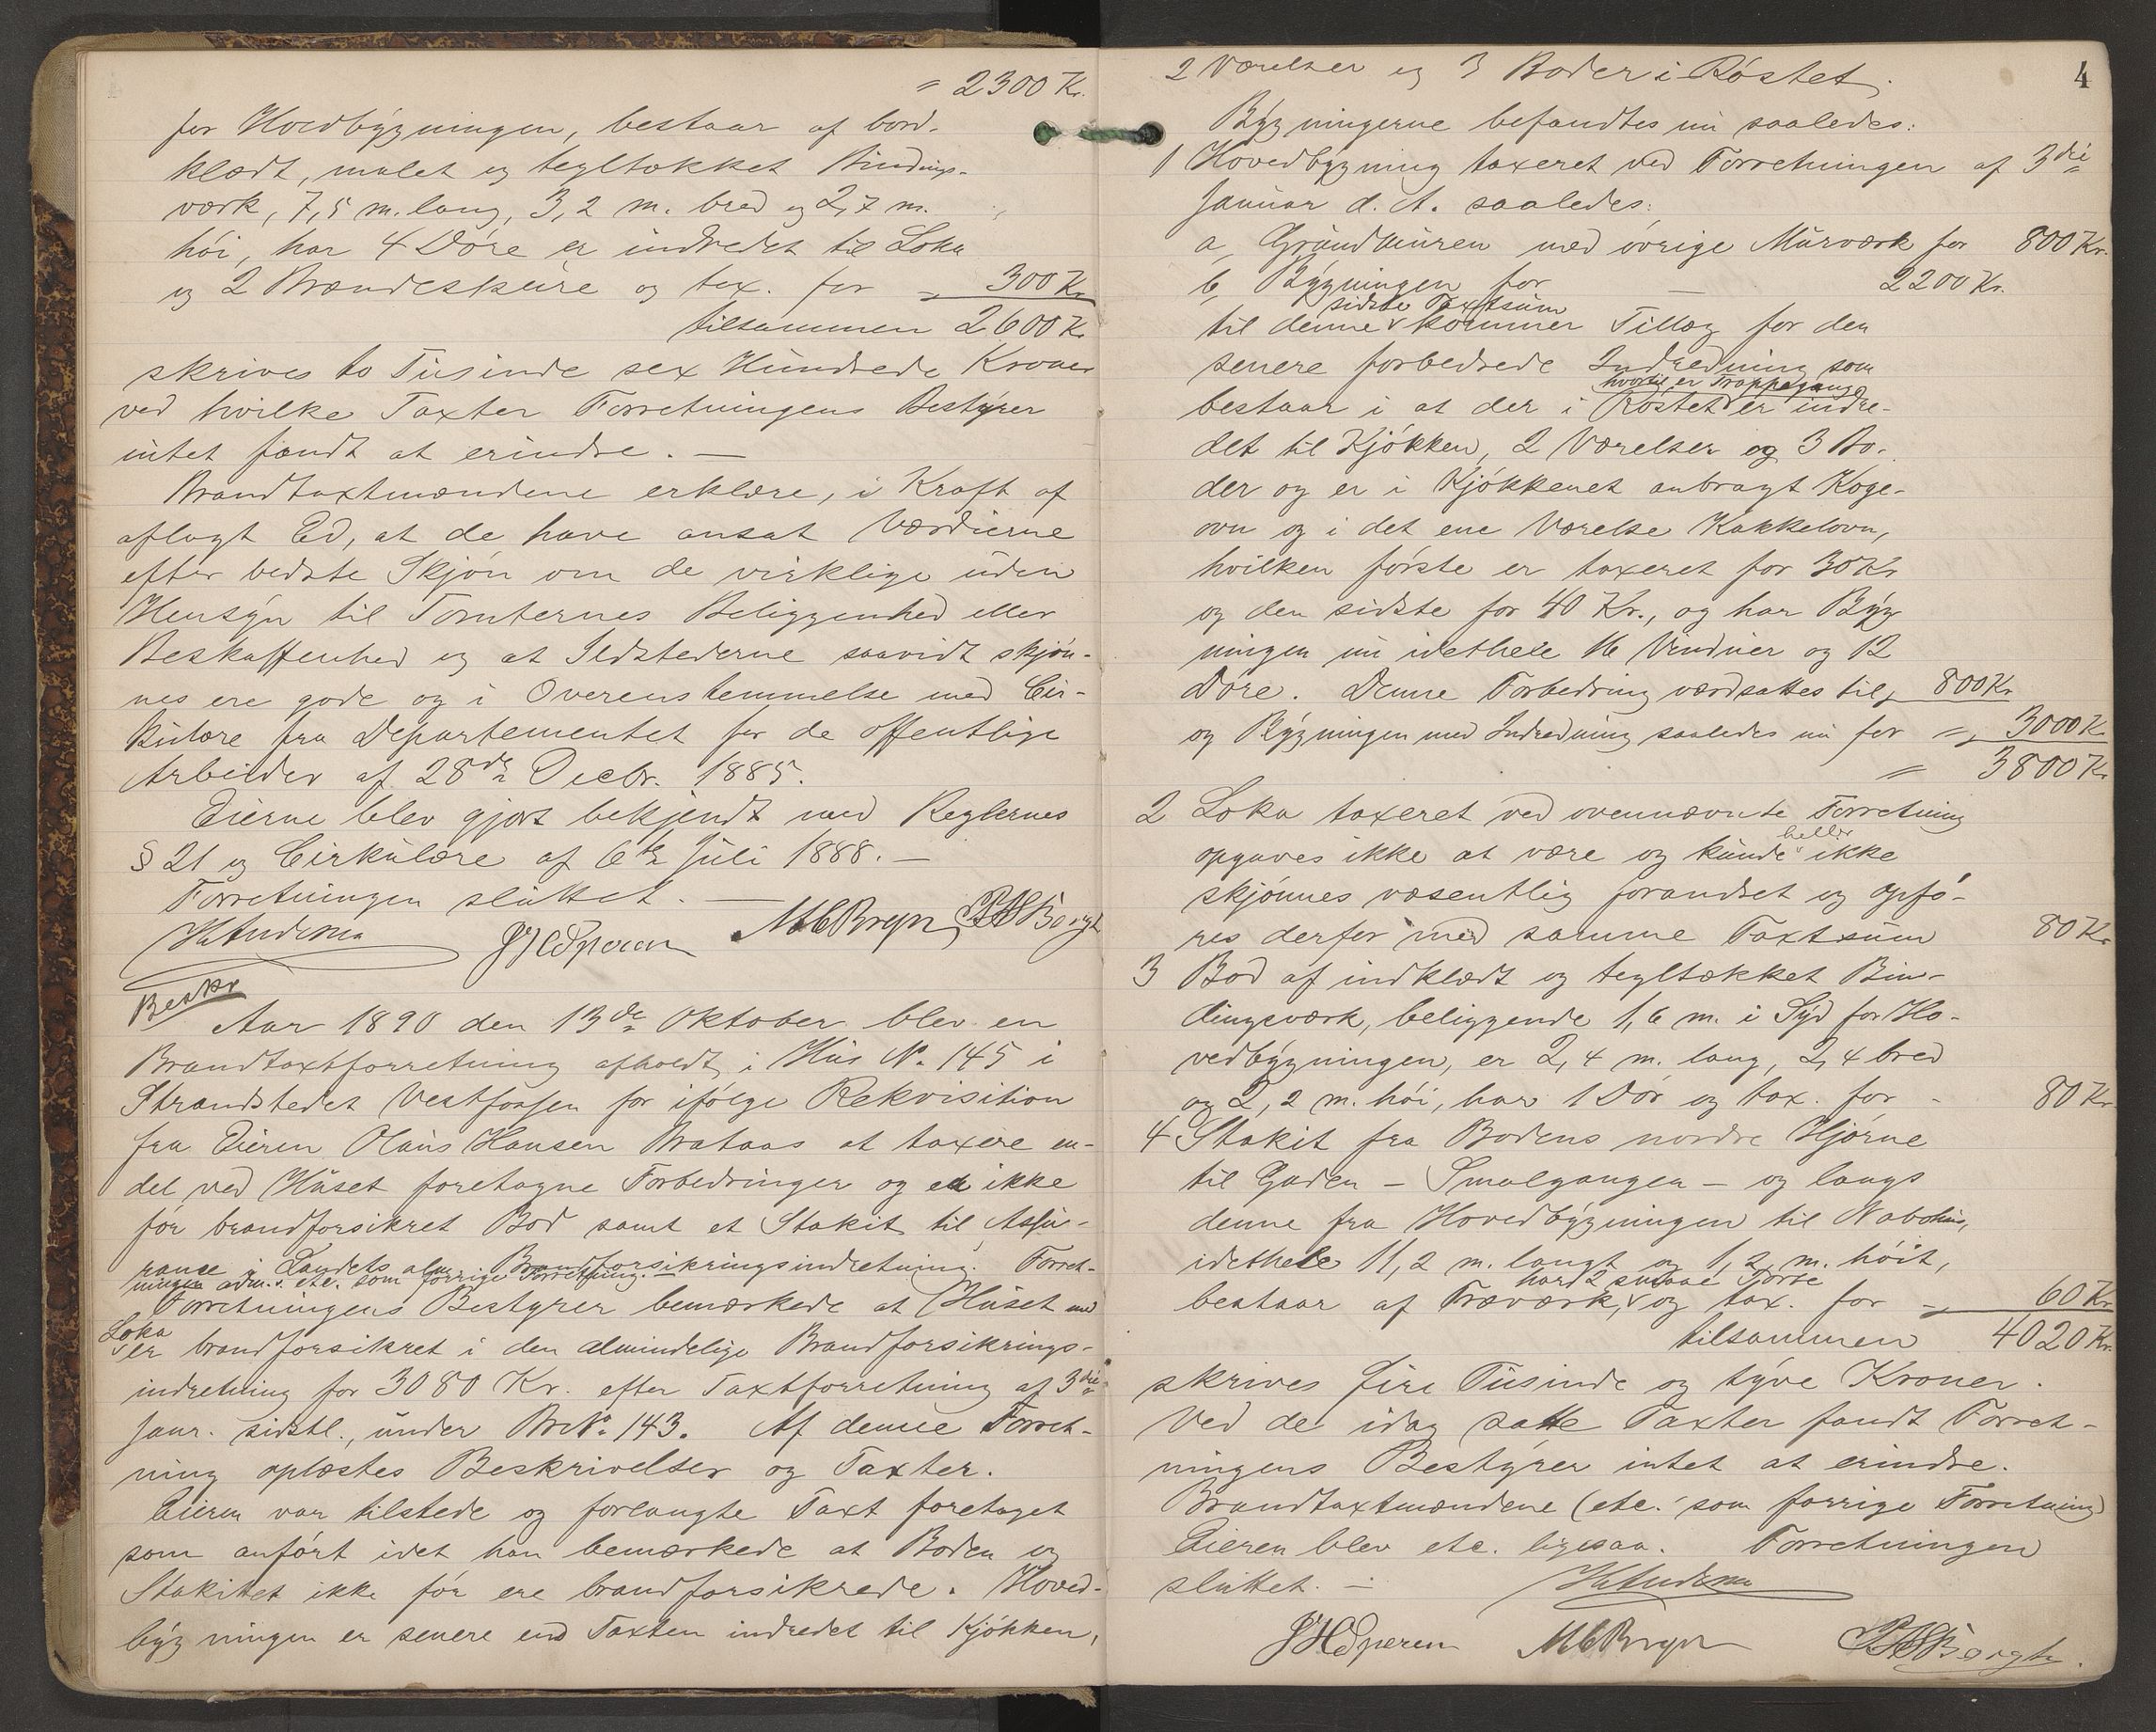 " 2300 Kr.
for Hovedbygningen, bestaar af bord-
klædt, malet og tegltækket Bindings-
værk, 7,5 m. lang, 3,2 m. bred og 2,7 m.
høi, har 4 Døre er indredet til Loka
og 2 Brændeskure og tax. for " 300 Kr
tilsammen 2600 Kr
skrives to Tusinde sex Hundrede Kroner
ved hvilke Taxter Forretningens Bestyrer
intet fandt at erindre. —
Brandtaxtmændene erklære, i Kraft af
aflagt Ed, at de have ansat Værdierne
efter bedste Skjøn om de virklige uden
Hensyn til Tomternes Beliggenhed eller
Beskaffenhed og at Ildstederne saavidt skjøn-
nes ere gode og i Overenstemmelse med Cir-
kulære fra Departementet for de offentlige
Arbeider af 28de Decbr. 1885.
Eierne blev gjort bekjendt med Reglernes
§ 21 og Cirkulære af 6te Juli 1888. —
Forretningen sluttet. —
MCBryn
Beskr
Aar 1890 den 13de Oktober blev en
Brandtaxtforretning afholdt i Hus No 145 i
Strandstedet Vestfossen for ifølge Rekvisition
fra Eieren Olaus Hansen Brataas at taxere en-
del ved Huset foretagne Forbedringer og en ikke
før brandforsikret Bod samt et Stakit til Assu-
rance i Landets alm. Brandforsikringsindretning. Forret-
ningen adm. etc. som forrige Forretning. —
Forretningens Bestyrer bemærkede at Huset med
Loka er brandforsikret i den almindelige Brandforsikrings-
indretning for 3080 Kr. efter Taxtforretning af 3die
Janr. sidstl., under Br No 143. Af denne Forret-
ning oplæstes Beskrivelser og Taxter.
Eieren var tilstede og forlangte Taxt foretaget
som anført idet han bemærkede at Boden og
Stakitet ikke før ere brandforsikrede. Hoved-
bygningen er senere end Taxten indredet til Kjøkken,
4
2 Værelser og 3 Boder i Røstet.
Bygningerne befandtes nu saaledes:
1 Hovedbygning taxeret ved Forretningen af 3die
Januar d. A. saaledes:
a, Grundmuren med øvrige Murværk for 800 Kr.
b, Bygningen for — 2200 Kr.
til denne sidste Taxtsum kommer Tillæg for den
senere forbedrede Indredning som
bestaar i at der i Røstet hvortil er Trappegang er indre-
det til Kjøkken, 2 Værelser og 3 Bo-
der og er i Kjøkkenet anbragt Koge-
ovn og i det ene Værelse Kakkelovn,
hvilken første er taxeret for 30 Kr
og den sidste for 40 Kr., og har Byg
ningen nu idethele 16 Vinduer og 12
Døre. Denne Forbedring værdsattes til " 800 Kr
og Bygningen med Indredning saaledes nu for " 3000 Kr
" 3800 Kr
2 Loka taxeret ved ovennævnte Forretning
opgaves ikke at være og kunde heller ikke
skjønnes væsentlig forandret og opfø-
res derfor med samme Taxtsum 80 Kr
3 Bod af indklædt og tegltækket Bin-
dingsværk, beliggende 1,6 m. i Syd for Ho-
vedbygningen, er 2,4 m. lang, 2,4 bred
og 2,2 m. høi, har 1 Dør og tax. for - 80 Kr
4 Stakit fra Bodens nordre Hjørne
til Gaden — Smalgangen — og langs
denne fra Hovedbygningen til Nabohus,
idethele 11,2 m. langt og 1,2 m. høit,
bestaar af Træværk, har 2 smaae Porte og tax. for " 60 Kr
tilsammen 4020 Kr.
skrives fire Tusinde og tyve Kroner.
Ved de idag satte Taxter fandt Forret-
ningens Bestyrer intet at erindre.
Brandtaxtmændene (etc. som forrige Forretning)
Eieren blev etc. ligesaa. Forretningen
sluttet. —
MCBryn